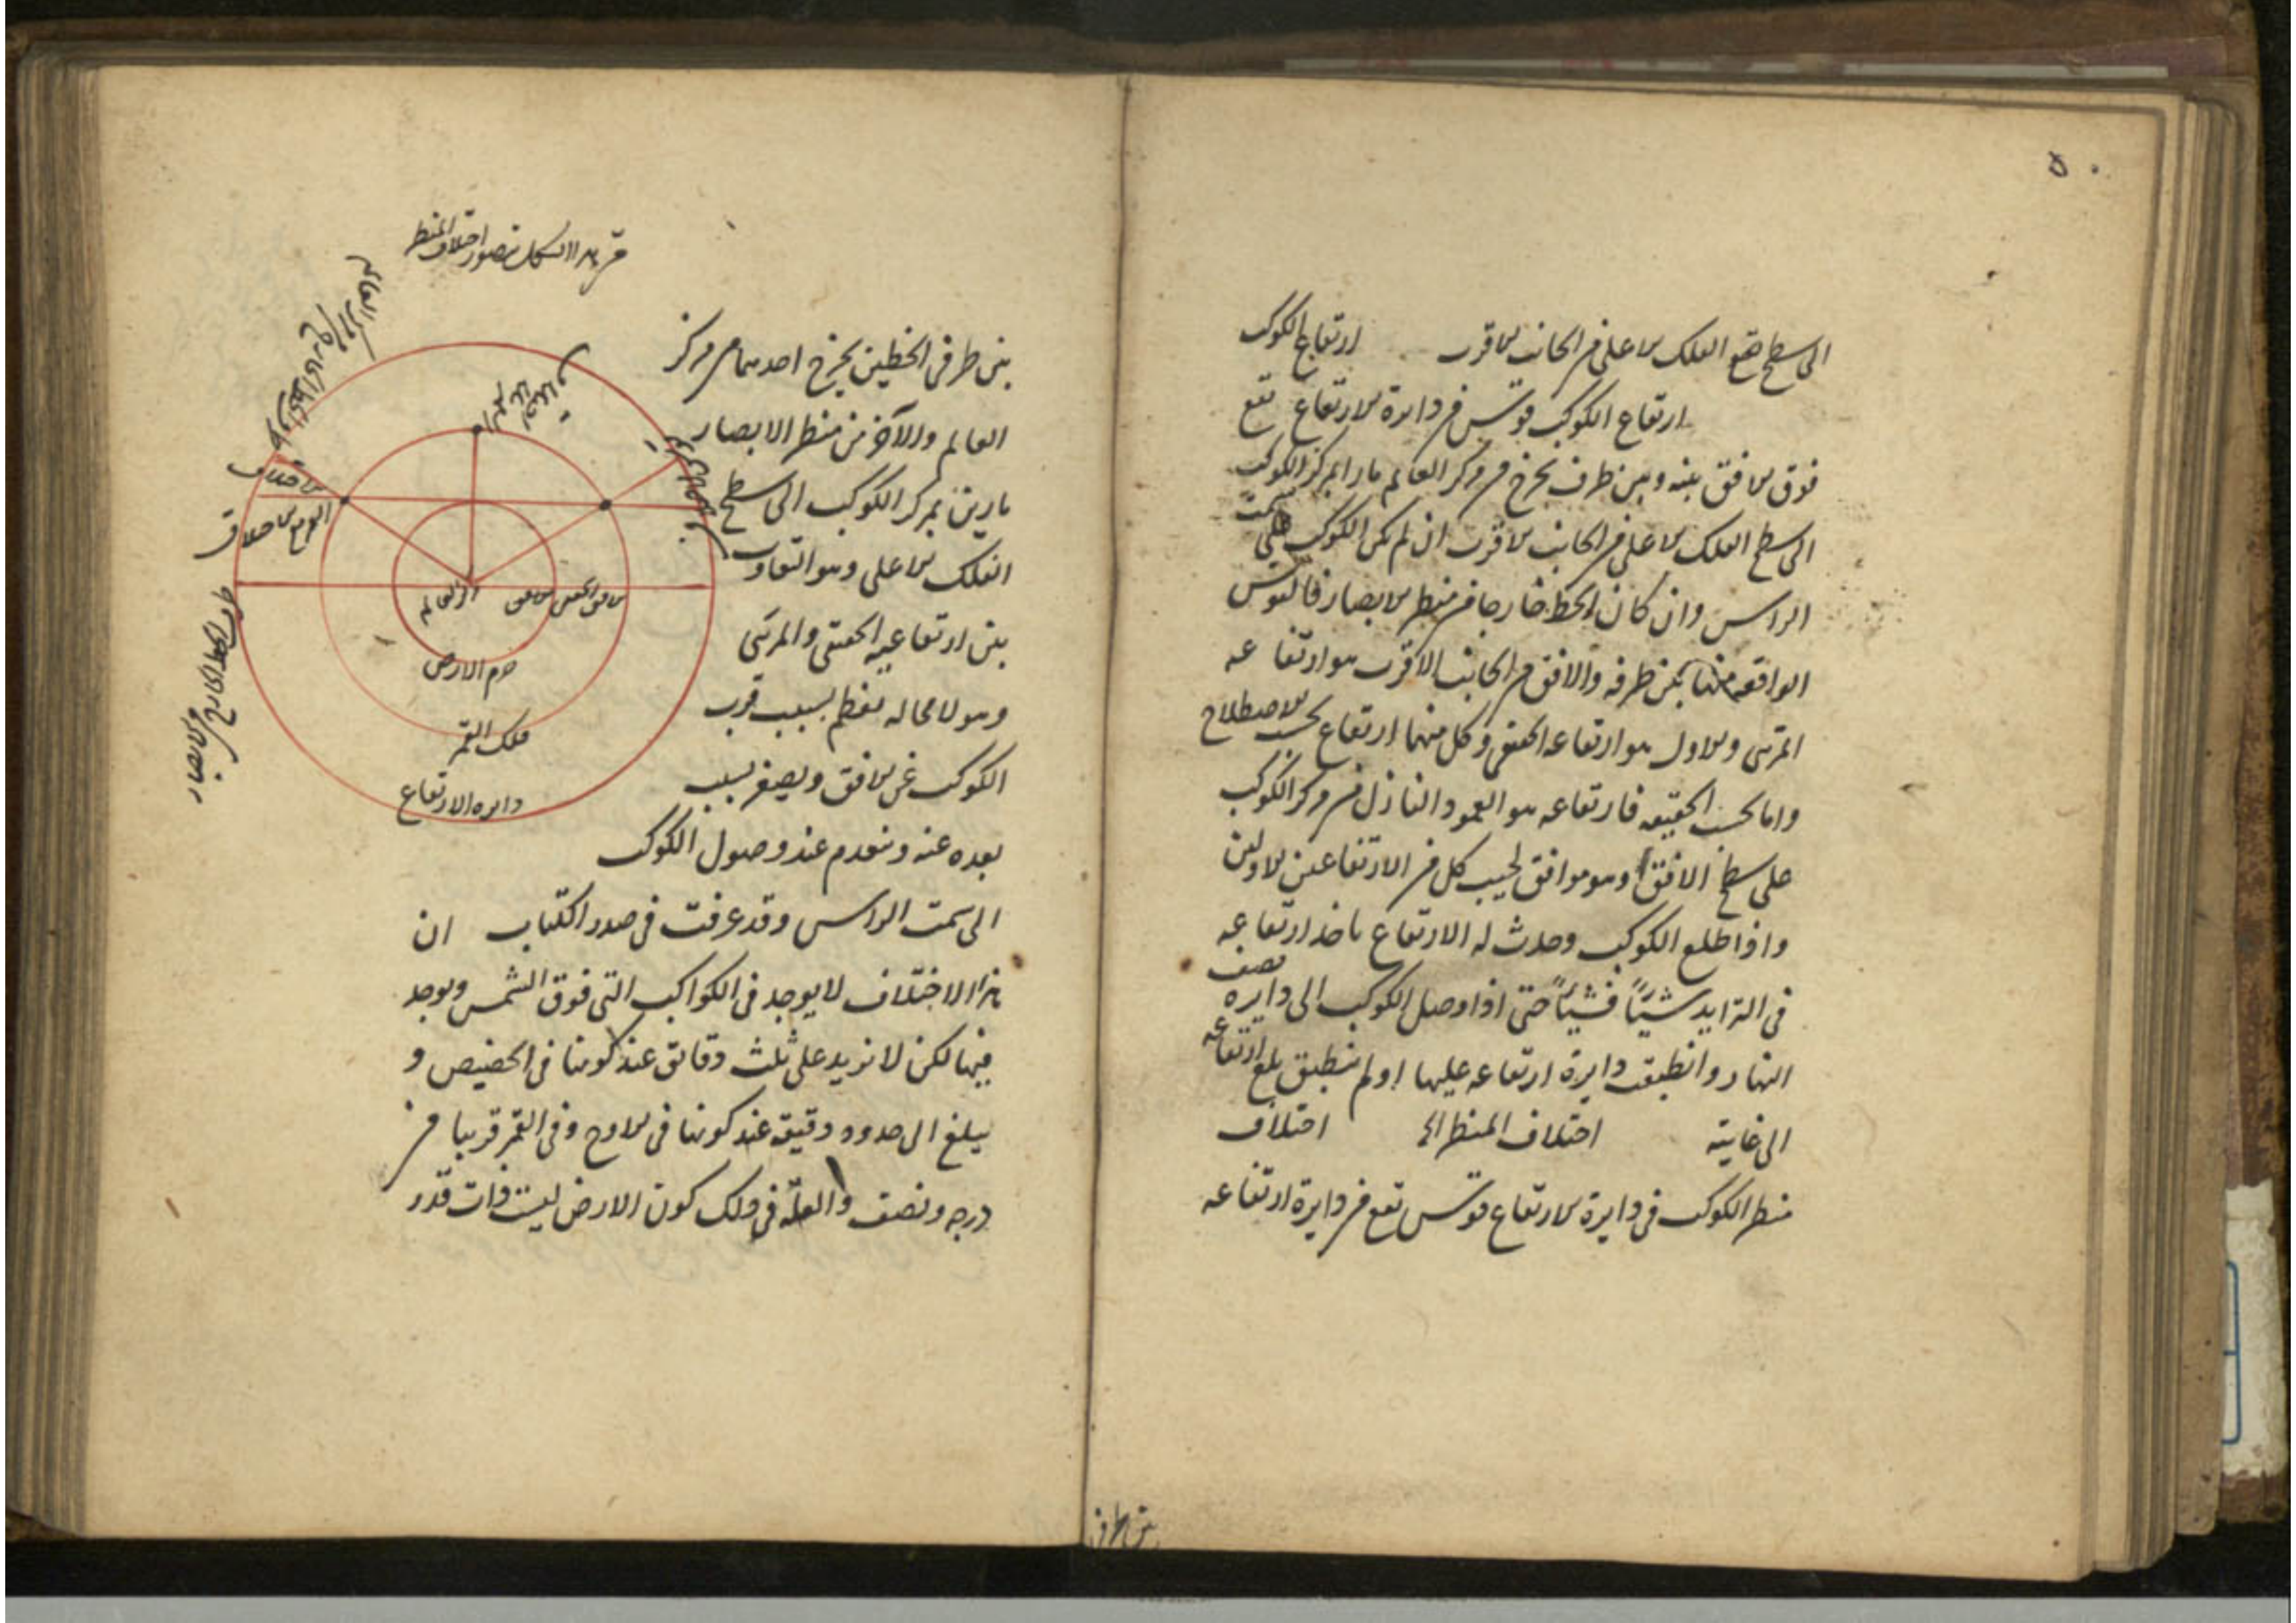 ٥٠
الى سطح الفلك الاعلى من الجانب الاقرب ارتفاع الكوكب
ارتفاع الكوكب قوس من دايرة الارتفاع تقع
فوق الافق بينه وبين طرف يخرج من مركز العالم مارا بمركز الكوكب
الى سطح الفلك الاعلى من الجانب الاقرب ان لم يكن الكوكب على سمت
الراس وان كان الخط خارجا من منظر الابصار فالقوس
الواقعه منها بين طرفه والافق من الجانب الاقرب هو ارتفاعه
المرئى والاول هو ارتفاعه الحقيقى وكل منهما ارتفاع بحسب الاصطلاح
واما بحسب الحقيقه فارتفاعه هو العمود النازل من مركز الكوكب
على سطح الافق وهو موافق لجيب كل من الارتفاعين الاولين
واذا طلع الكوكب وحدث له الارتفاع ياخذ ارتفاعه
فى التزايد شيئاً فشيئاً حتى اذا وصل الكوكب الى دايره نصف
النهار وانطبقت دايرة ارتفاعه عليها اولم ينطبق بلغ ارتفاعه
الى غايته اختلاف المنظر اختلاف
منظر الكوكب فى دايرة الارتفاع قوس تقع من دايرة ارتفاعه
بين طرفى
بين طرفى الخطين يخرج احدهما من مركز
العالم والآخر من منظر الابصار
مارين بمركز الكوكب الى سطح
الفلك الاعلى وهو التفاوت
بين ارتفاعيه الحقيقى والمرئى
وهو لا محاله يعظم بسبب قرب
الكوكب من الافق ويصغر بسبب
بعده عنه وينعدم عند وصول الكوكب
الى سمت الراس وقد عرفت فى صدر الكتاب ان
هذا الاختلاف لا يوجد فى الكواكب التى فوق الشمس ويوجد
فيها لكن لا يزيد على ثلث دقائق عند كونها فى الحضيض و
يبلغ الى حدود دقيقه عند كونها فى الاوج وفى القمر قريبا من
درجه ونصف والعلّه فى ذلك كون الارض ليست ذات قدر
من هذا الشكل يتصور اختلاف المنظر
مركز العالم
جرم الارض
فلك القمر
دايره الارتفاع